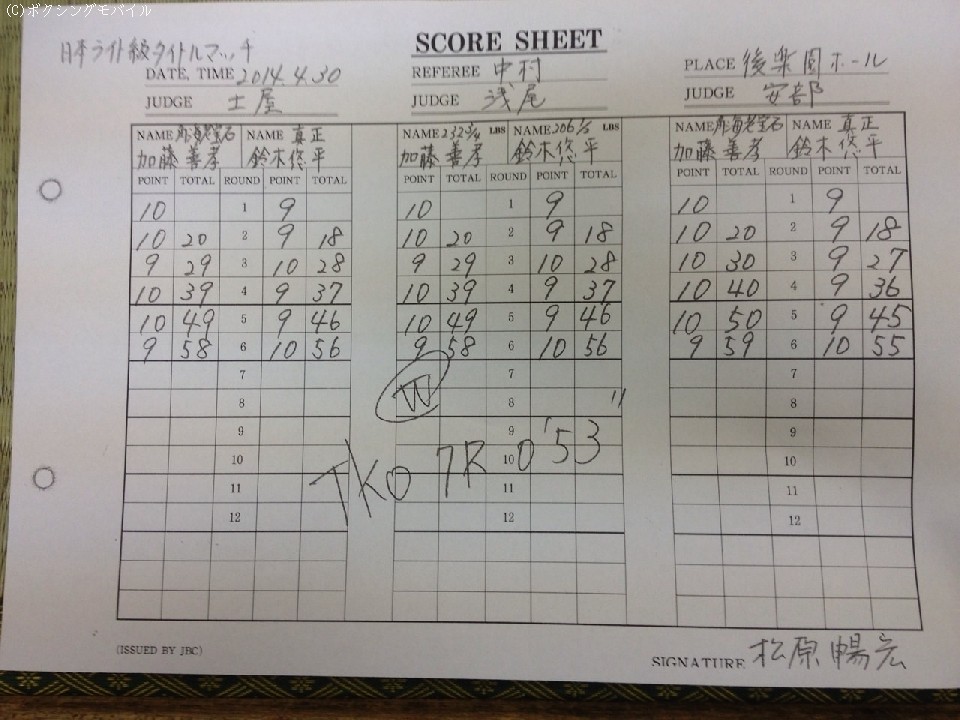 (C)ボクシングモバイル
日本ライト級タイトルマッチ
SCORE SHEET
DATE, TIME 2014.4.30
REFEREE 中村
PLACE 後楽園ホール
JUDGE 土屋
JUDGE 浅尾
JUDGE 安部
NAME 角海老宝石 NAME 真正
加藤善孝 鈴木悠平
POINT TOTAL ROUND POINT TOTAL
10 1 9
10 20 2 9 18
9 29 3 10 28
10 39 4 9 37
10 49 5 9 46
9 58 6 10 56
7
8
9
10
11
12
NAME LBS NAME LBS
加藤善孝 鈴木悠平
POINT TOTAL ROUND POINT TOTAL
10 1 9
10 20 2 9 18
9 29 3 10 28
10 39 4 9 37
10 49 5 9 46
9 58 6 10 56
7
8
9
10
11
12
W
TKO 7R 0'53"
NAME 角海老宝石 NAME 真正
加藤善孝 鈴木悠平
POINT TOTAL ROUND POINT TOTAL
10 1 9
10 20 2 9 18
10 30 3 9 27
10 40 4 9 36
10 50 5 9 45
9 59 6 10 55
7
8
9
10
11
12
(ISSUED BY JBC)
SIGNATURE 松原暢宏